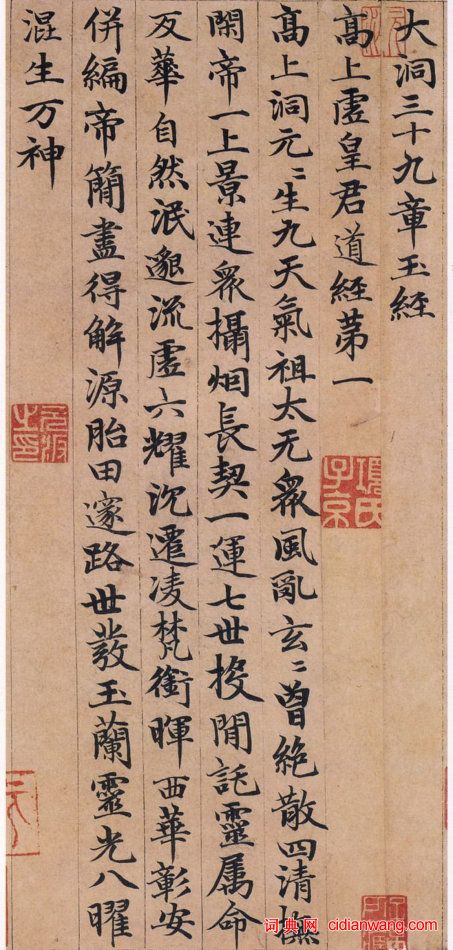 大洞三十九章玉經
高上虛皇君道經第一
高上洞元〻生九天氣祖太无衆風亂玄〻曾絶散四清撫
閑帝一上景連衆攝烟長契一運七世投閒託靈属命
反華自然泯邈流虛六耀沉遷凌梵銜暉西華彰安
併編帝簡盡得解源胎田邃路世發玉蘭靈光八曜
混生万神
項氏子京
词典网 cidianwang.com